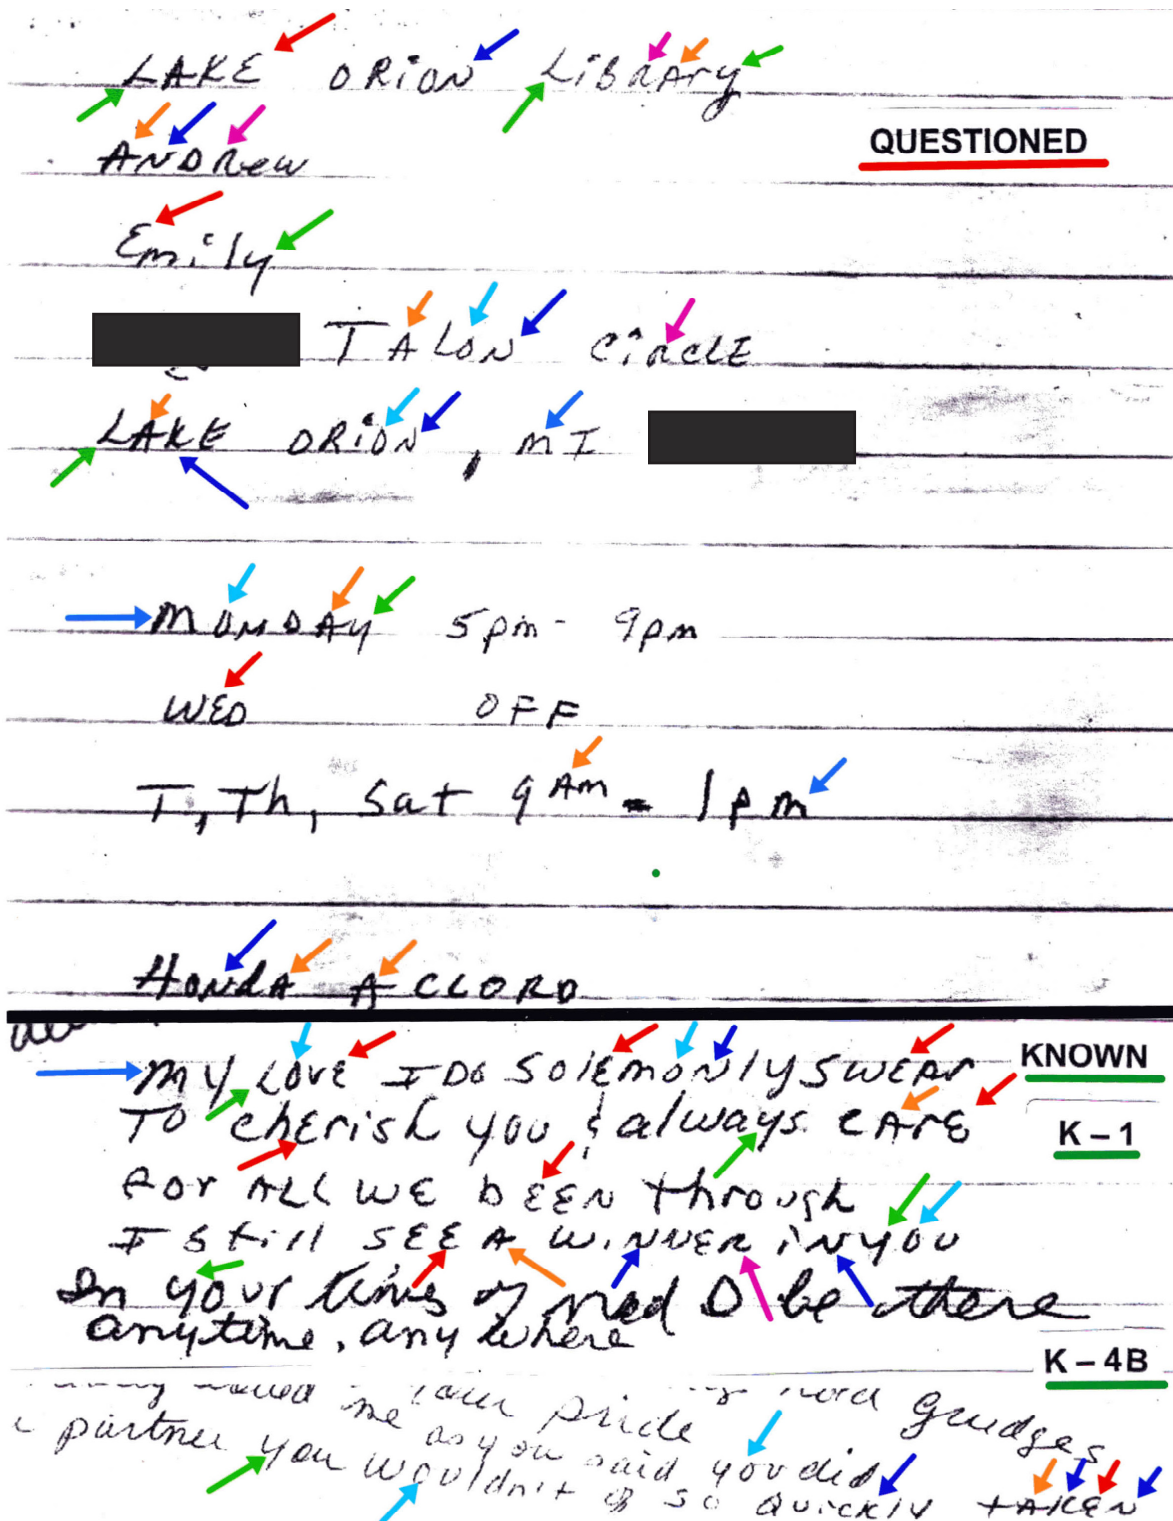 LAKE ORiON LiBRAry
QUESTIONED
ANDRew
Emily
TALON CiRclE
LAKE ORiON, mI
MOnDAy 5pm - 9pm
WED OFF
T, Th, Sat 9 Am - 1pm
HONdA ACCLORD
KNOWN
My LovE I DO SolEmONly SWEAr
K – 1
To chErish you & always CArE
For ALL WE bEEN through
I Still SEE A WiNNER iN you
In your times of need I be there
anytime, any where
K – 4B
me as you said you did
pride
hold Grudges
partner you wouldn't of so quickly tAKEN